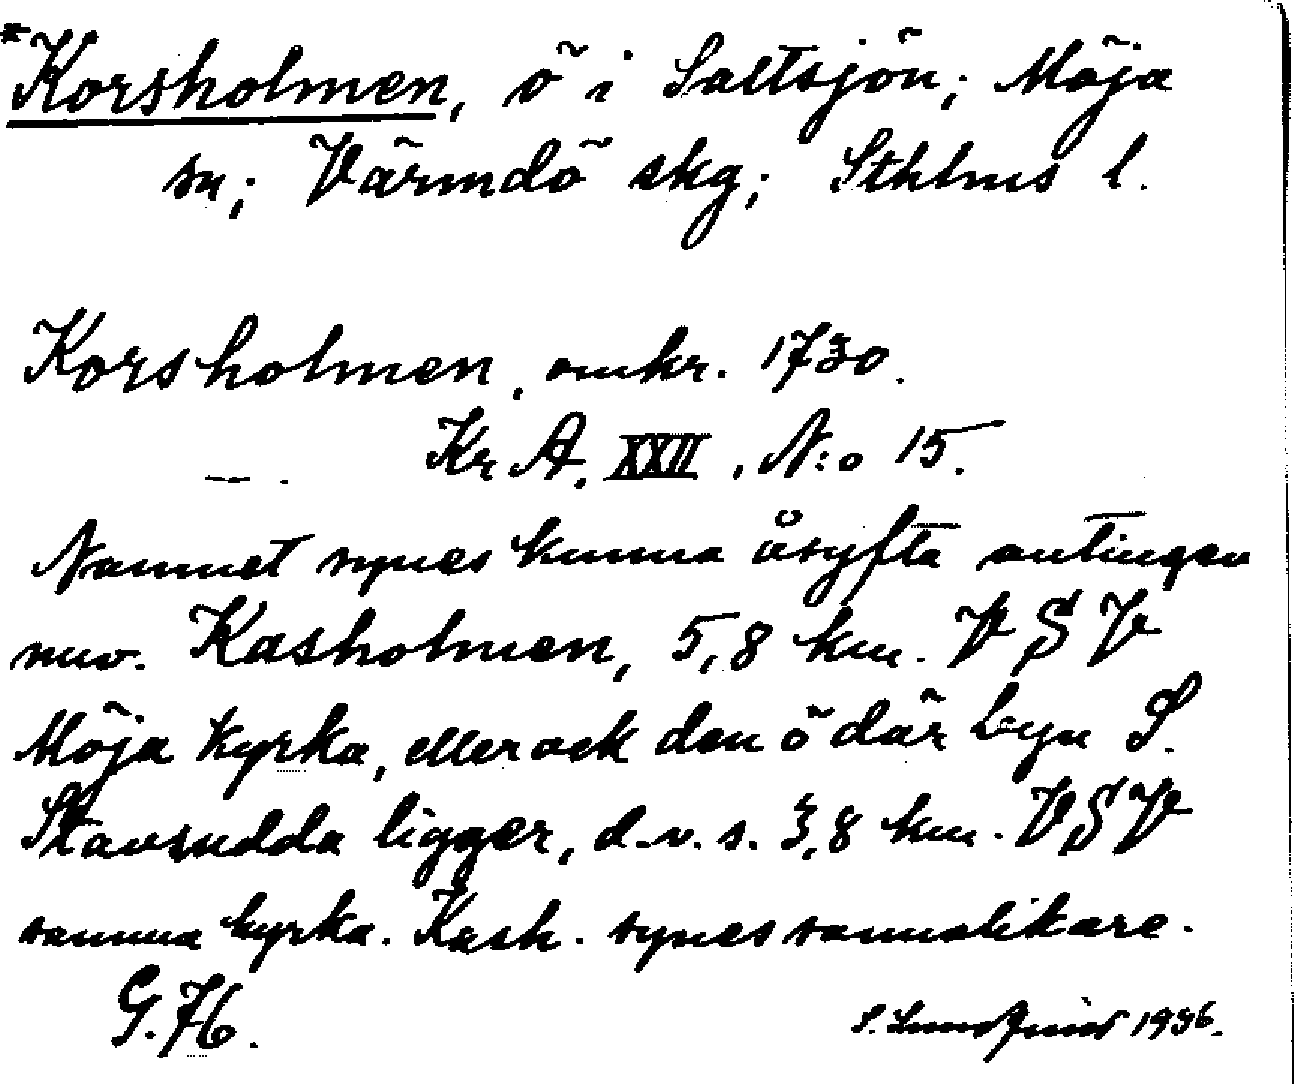 *Korsholmen, ö i Saltsjön; Möja
sn; Värmdö skg; Sthlms l.
Korsholmen, omkr. 1730.
Kr A. XXII, N:o 15.
Namnet synes kunna åsyfta antingen
nuv. Kasholmen, 5,8 km. VSV
Möja kyrka, eller ock den ö där byn S.
Stavsudda ligger, d.v.s. 3,8 km. VSV
samma kyrka. Kash. synes sannolikare.
G. 76.
S. 1936.